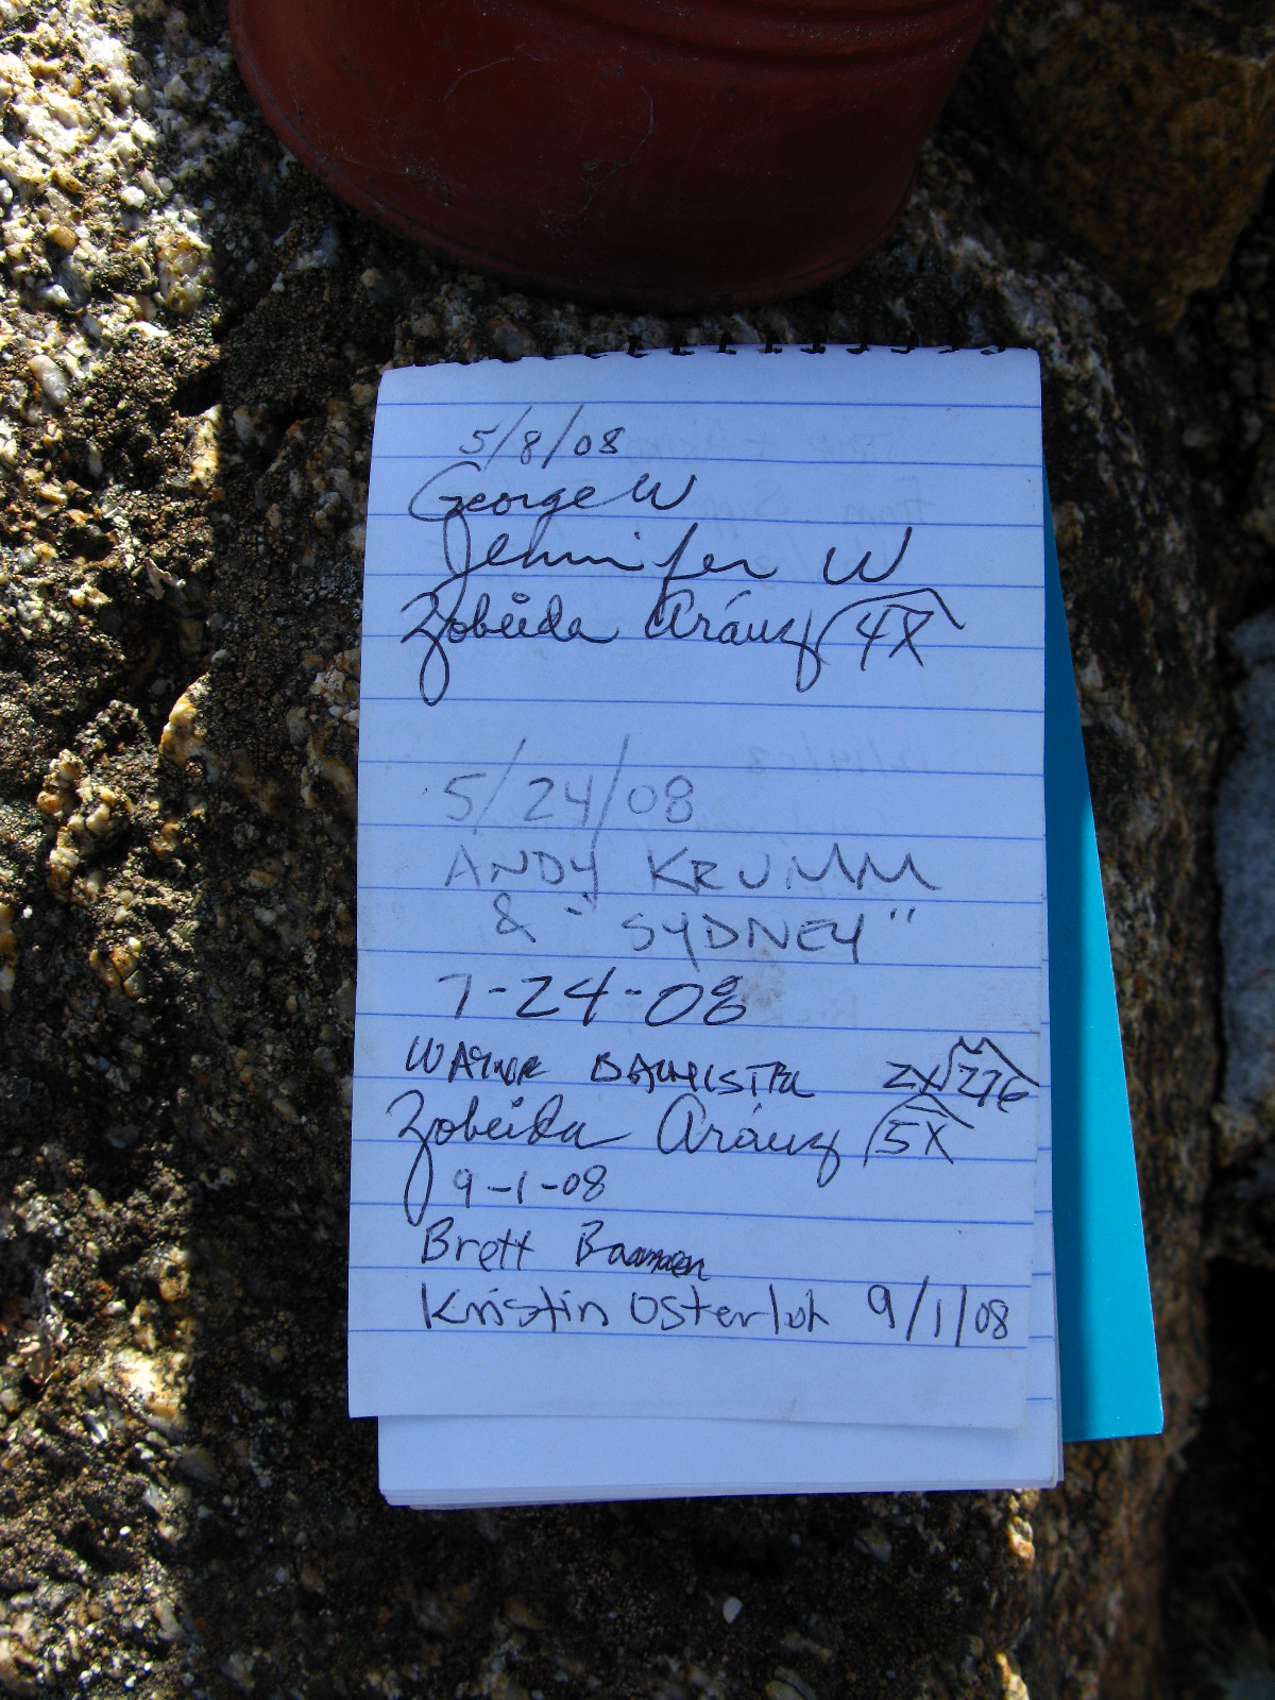 5/8/08
George W
Jennifer W
Zobeida Aráuz 4X
5/24/08
ANDY KRUMM
& "SYDNEY"
7-24-08
2X 276
Zobeida Aráuz 5X
9-1-08
Brett
Kristin Osterloh 9/1/08